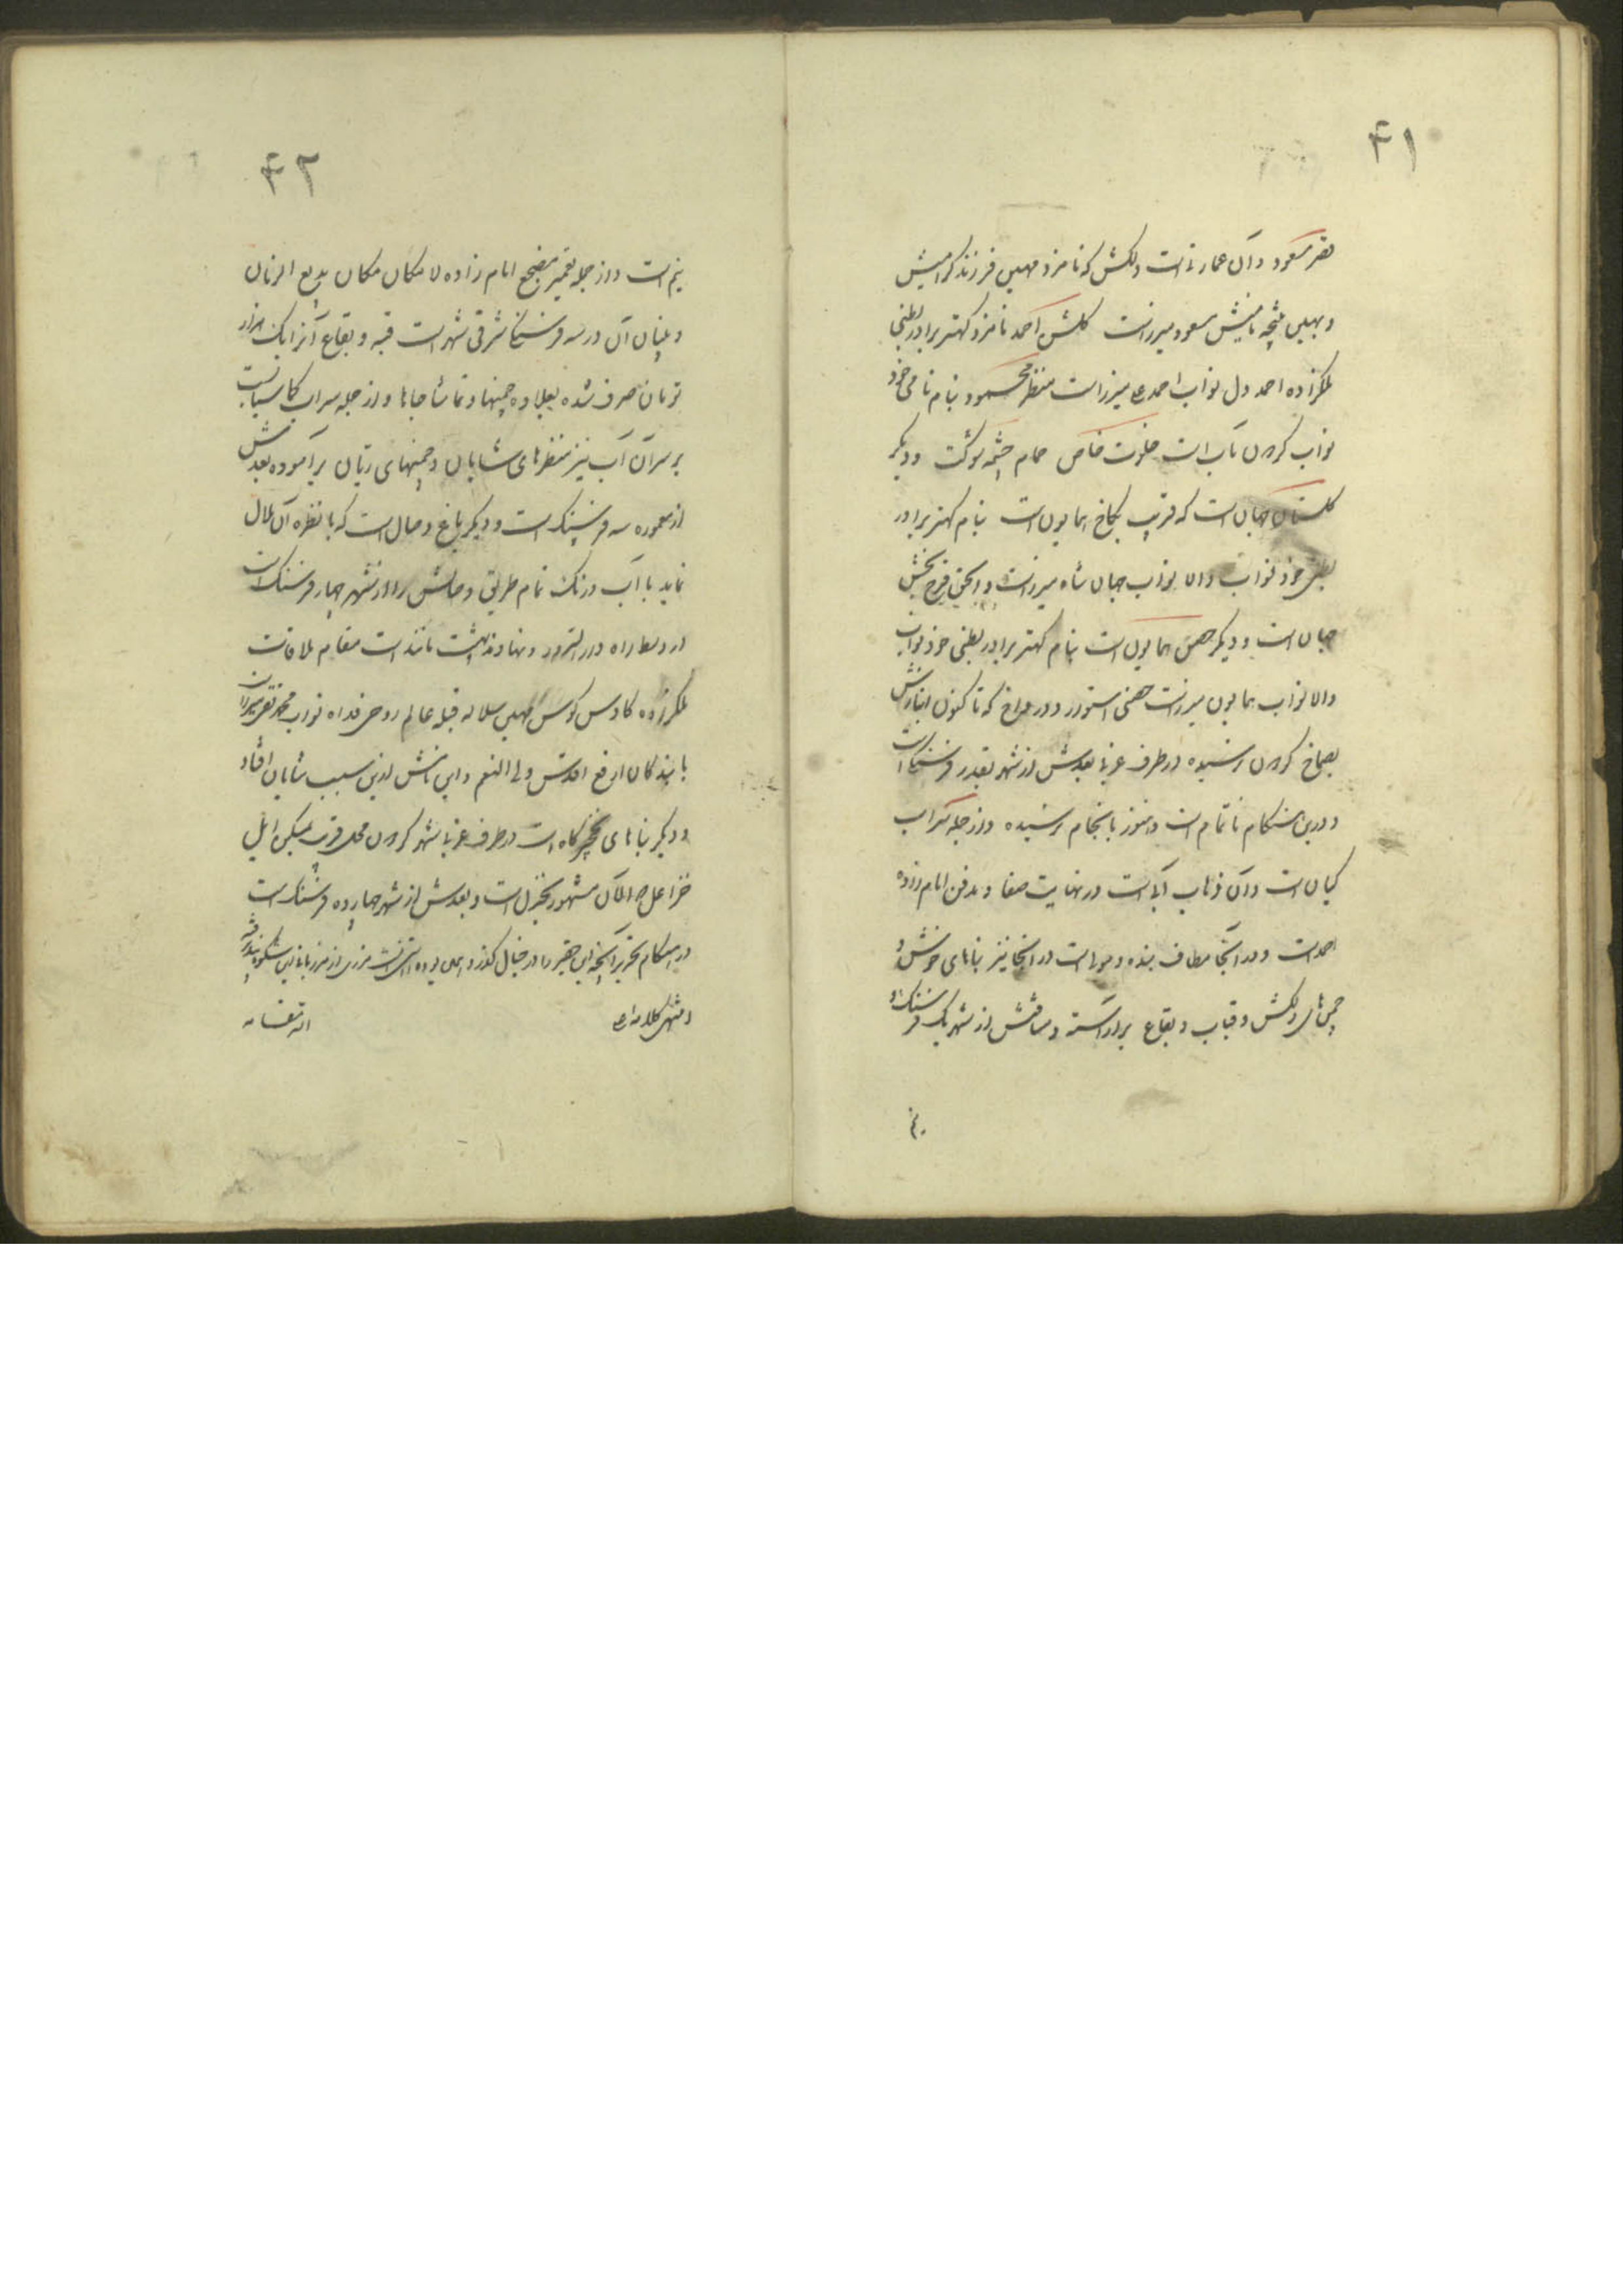 ۴۱
قصر مسعود و آن عمارتی است دلکش که نامزد مهین فرزند گرامیش
و بهین نتیجه نامیش مسعود میرزاست گلشن احمد نامزد کهتر برادر بطنی
ملکزاده احمد دل نواب احمد علی میرزاست منظر محمود بنام نامی خود
نواب گردون مآب است خلوت خاص حمام چشمه کوثر و دیگر
گلستان جهان است که قریب بکاخ همایون است بنام کهتر برادر
بطنی خود نواب والا نواب جهان شاه میرزاست و الحق فرح بخش
جهان است و دیگر حصن همایون است بنام کهتر برادر بطنی خود نواب
والا نواب همایون میرزاست حصنی استوار و در که تا کنون انبازش
بصماخ گردون نرسیده در طرف غربی بعدش از شهر بقدر فرسنگی است
و درین هنگام ناتمام است و هنوز بانجام نرسیده و از جمله سراب
کیان است و آن ذهاب آبی است در نهایت صفا و مدفن امام زاده
احمد است و در آنجا مطاف بنده و مولی است در آنجا نیز بناهای خوش و
چمن‌های دلکش و قباب و بقاع برآراسته و مسافتش از شهر یک فرسنگ و
نیم
۴۲
نیم است و از جمله تعمیر مضجع امام زاده لامکان مکان بدیع الزمان
و بنیان آن در سه فرسنگی شرقی شهر است قبه و بقاع آنرا یک هزار
تومان صرف شده بعلاوه چمنها و تماشا جاها و از جمله سراب کاسیاب است
بر سر آن آب نیز منظرهای شایان و چمنهای ریان برآموده بعدش
از معموره سه فرسنگ است و دیگر باغ وصال است که با نظره آن ملال
نماید با آب و رنگ تمام طریق وصالش را از شهر چهار فرسنگ است
در وسط راه دار السرور و نهاوند بهشت مانند است مقام ملاقات
ملکزاده کاوس کوس مهین سلاله قبله عالم روحی فداه نواب محمد تقی میرزا
با بندگان ارفع اقدس ولی النعم و این نامش ازین سبب شایان افتاد
و دیگر بناهای نخچیرگاه است در طرف غربی شهر گردون محل قرب بمسکن ایل
خزاعل و المکان مشهور بخزل است و بعدش از شهر چهارده فرسنگ است
در هنگام تحریر آنچه این حقیر را در خیال گذرد همین بوده
انتهی کلامه